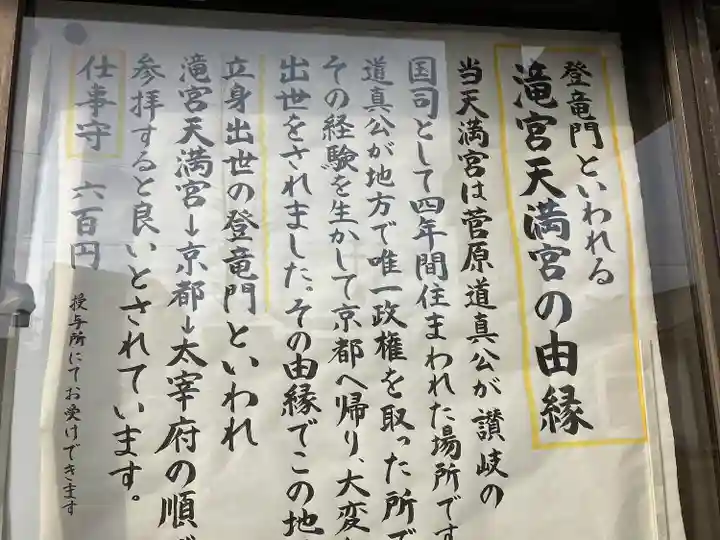 登竜門といわれる
滝宮天満宮の由縁
当天満宮は菅原道真公が讃岐の
国司として四年間住まわれた場所です
道真公が地方で唯一政権を取った所で
その経験を生かして京都へ帰り、大変
出世をされました。その由縁でこの地
立身出世の登竜門といわれ
滝宮天満宮→京都→太宰府の順
参拝すると良いとされています。
仕事守 六百円 授与所にてお受けできます